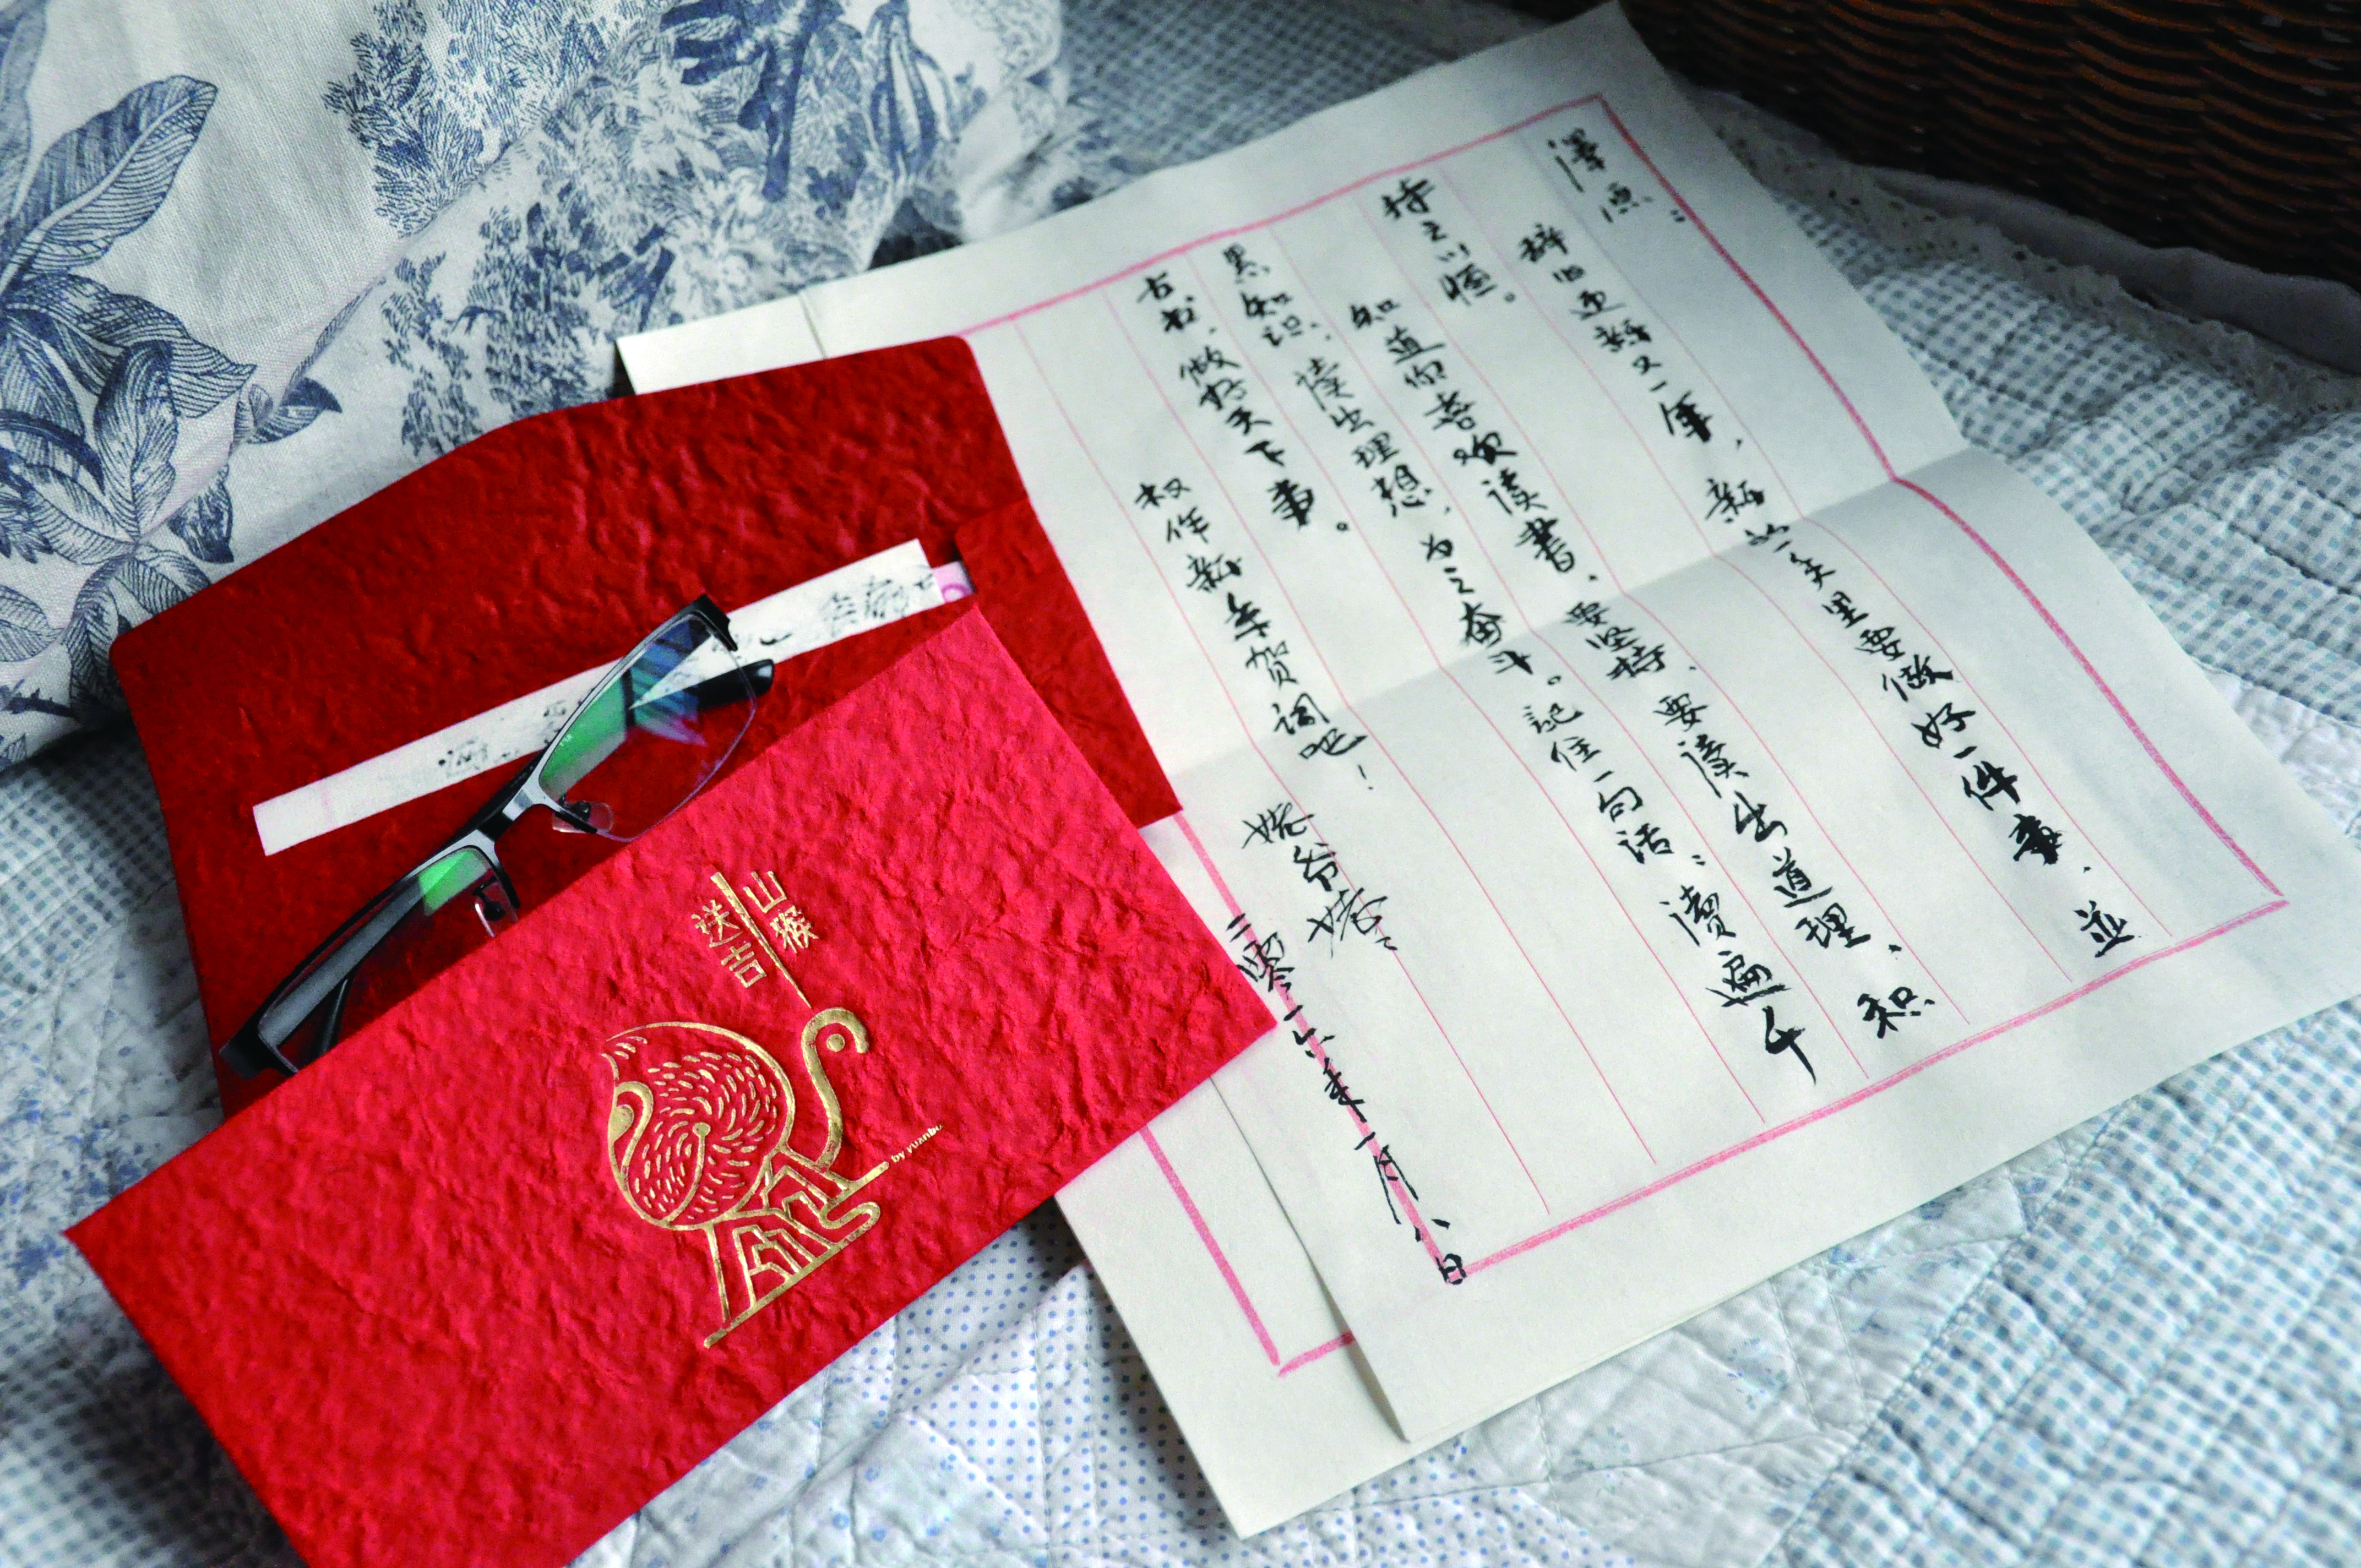 澤源：
辞旧迎新又一年，新的一年里要做好一件事、並
持之以恒。
知道你喜欢读書、要坚持、要读出道理、积
累知识、读出理想，为之奋斗。記住一句话：讀遍千
古书，做好天下事。
权作新年贺词吧！
姥爷姥姥
二零一六年一月八日
山猴
送吉
by yuanbo